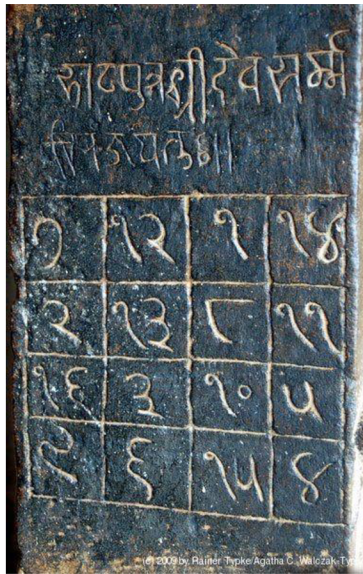 पुत्रश्रीदेवसर्म्म
७ १२ १ १४
२ १३ ८ ११
१६ ३ १० ५
९ ६ १५ ४
(c) 2009 by Rainer Typke/Agatha C. Walczak-Ty